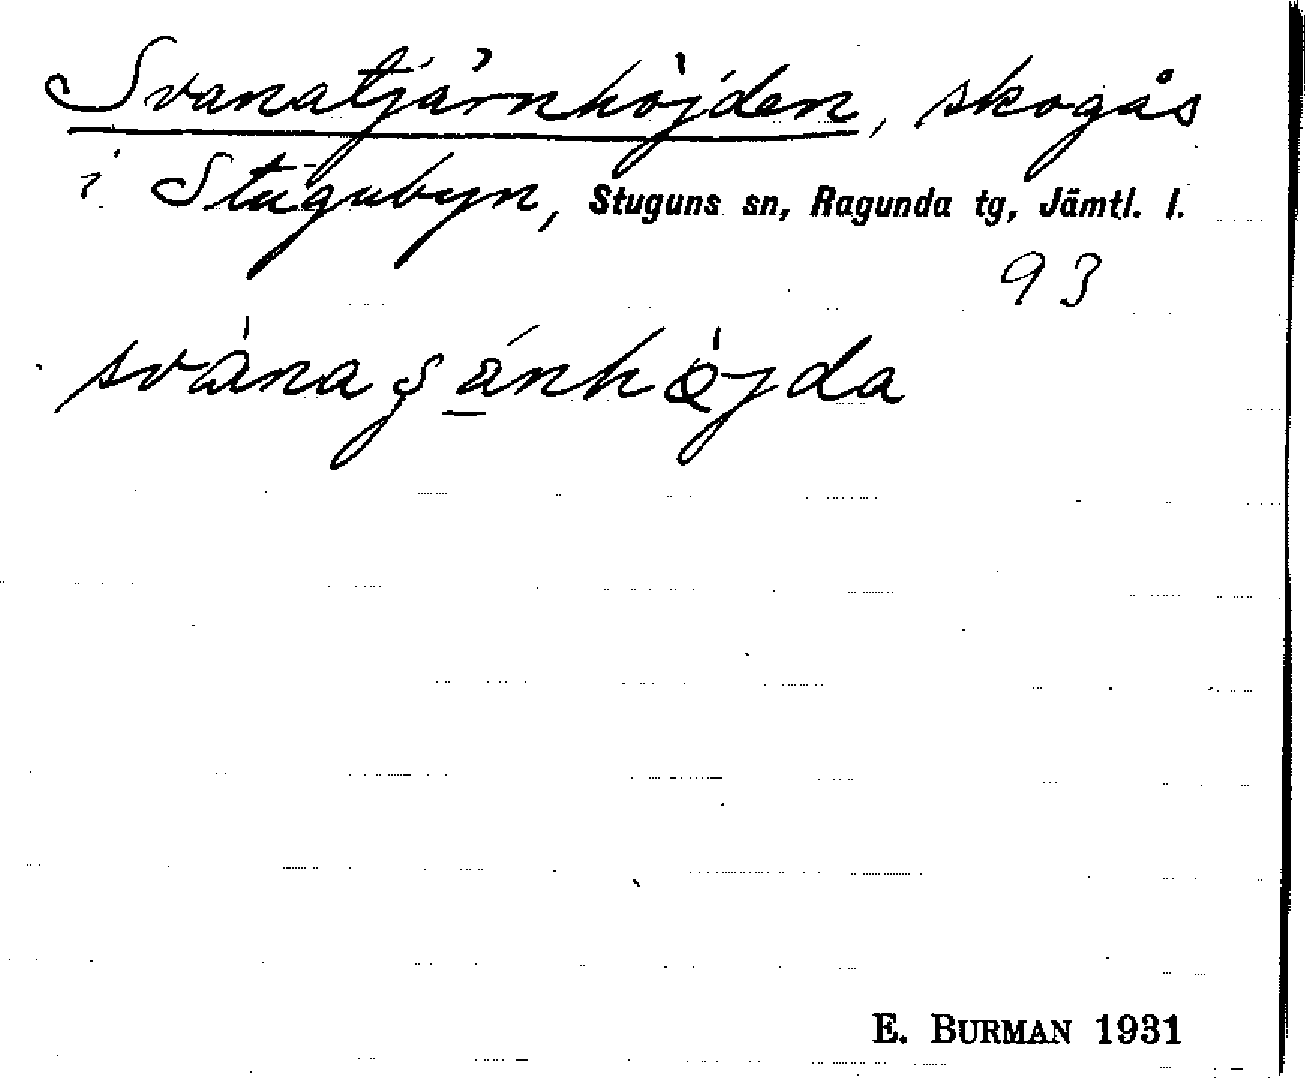 Svanatjärnhöjden, skogås
i Stugubyn, Stuguns sn, Ragunda tg, Jämtl. l.
93
svȧnaʂánhöjda
E. BURMAN 1931